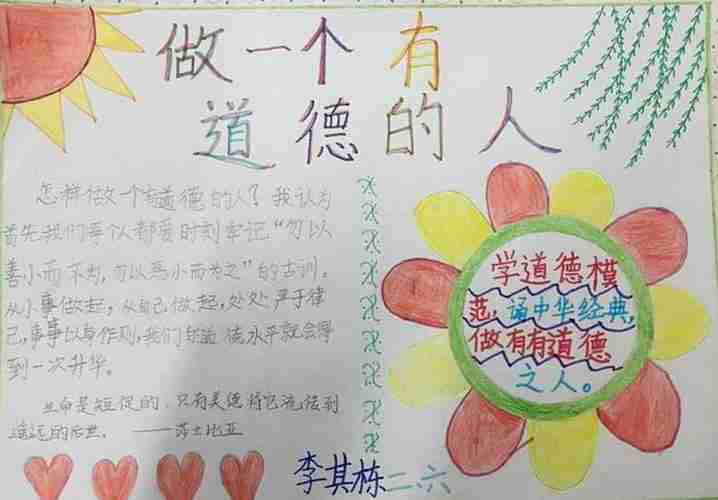 做一个有
道德的人
怎样做一个有道德的人？我认为
首先我们每个人都要时刻牢记“勿以
善小而不为，勿以恶小而为之”的古训。
从小事做起，从自己做起，处处严于律
己，事事以身作则，我们的道德水平就会得
到一次升华。
生命是短促的，只有美德将它流传到
遥远的后世。——莎士比亚
学道德模
范，诵中华经典，
做有有道德
之人。
李其栋二.六